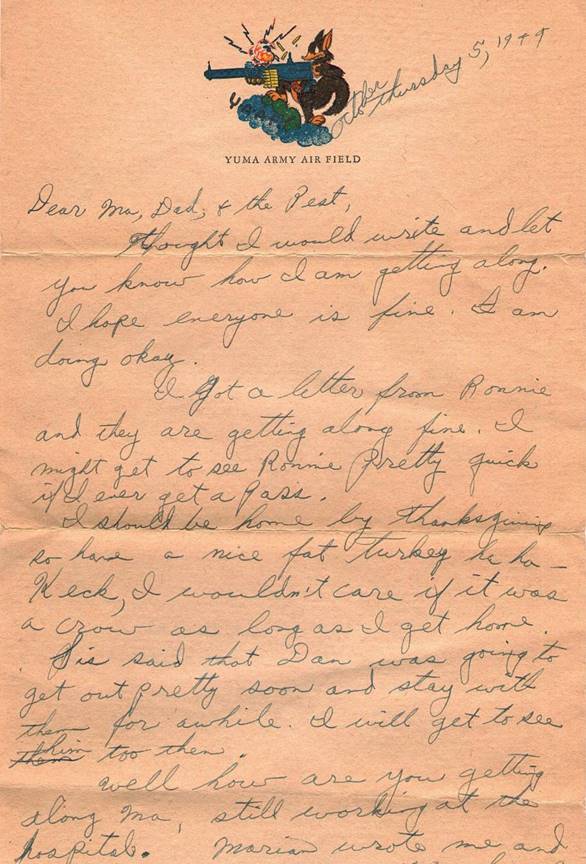 October thursday 5, 1944
YUMA ARMY AIR FIELD
Dear Ma, Dad, & the Pest,
Thought I would write and let
you know how I am getting along.
I hope everyone is fine. I am
doing okay.
I got a letter from Ronnie
and they are getting along fine. I
might get to see Ronnie pretty quick
if I ever get a pass.
I should be home by thanksgiving
so have a nice fat turkey ha ha-
Heck, I wouldn't care if it was
a crow as long as I get home.
Sis said that Dan was going to
get out pretty soon and stay with
them for awhile. I will get to see
him too then.
Well how are you getting
along Ma, still working at the
hospital. Marian wrote me and